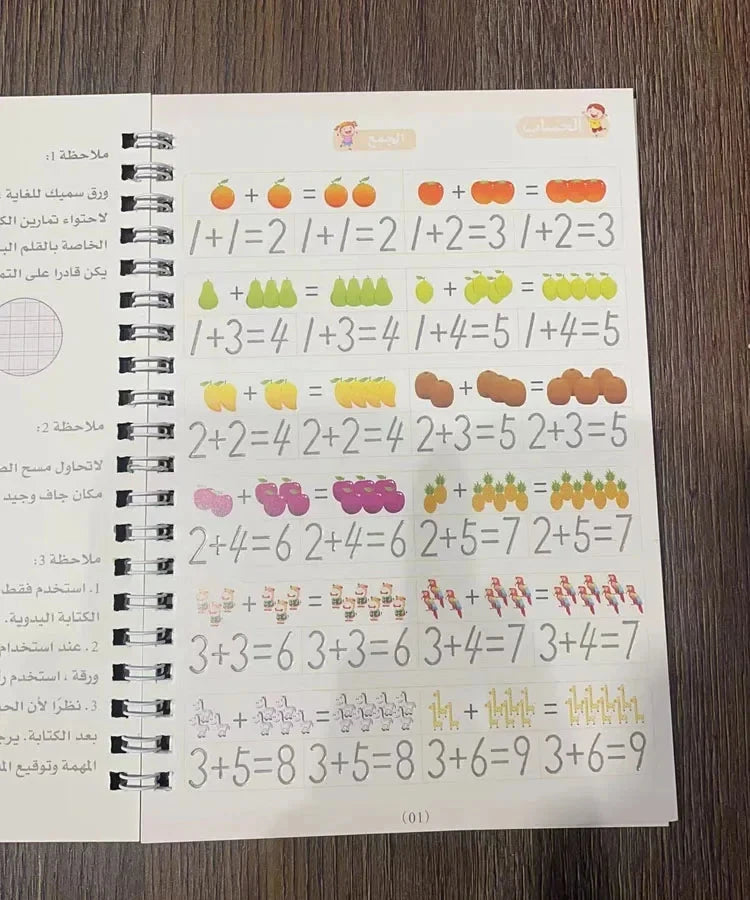 الحساب
الجمع
+ =
+ =
1+1=2 1+1=2 1+2=3 1+2=3
+ =
+ =
1+3=4 1+3=4 1+4=5 1+4=5
+ =
+ =
2+2=4 2+2=4 2+3=5 2+3=5
+ =
+ =
2+4=6 2+4=6 2+5=7 2+5=7
+ =
+ =
3+3=6 3+3=6 3+4=7 3+4=7
+ =
+ =
3+5=8 3+5=8 3+6=9 3+6=9
(01)
ملاحظة 1:
ورق سميك للغاية
لاحتواء تمارين
الخاصة بالقلم
يكن قادرا على
ملاحظة 2:
لاتحاول مسح
مكان جاف وجيد
ملاحظة 3:
1. استخدم فقط
الكتابة اليدوية.
2. عند استخدام
ورقة ، استخدم
3. نظرًا لأن
بعد الكتابة.
المهمة وتوقيع